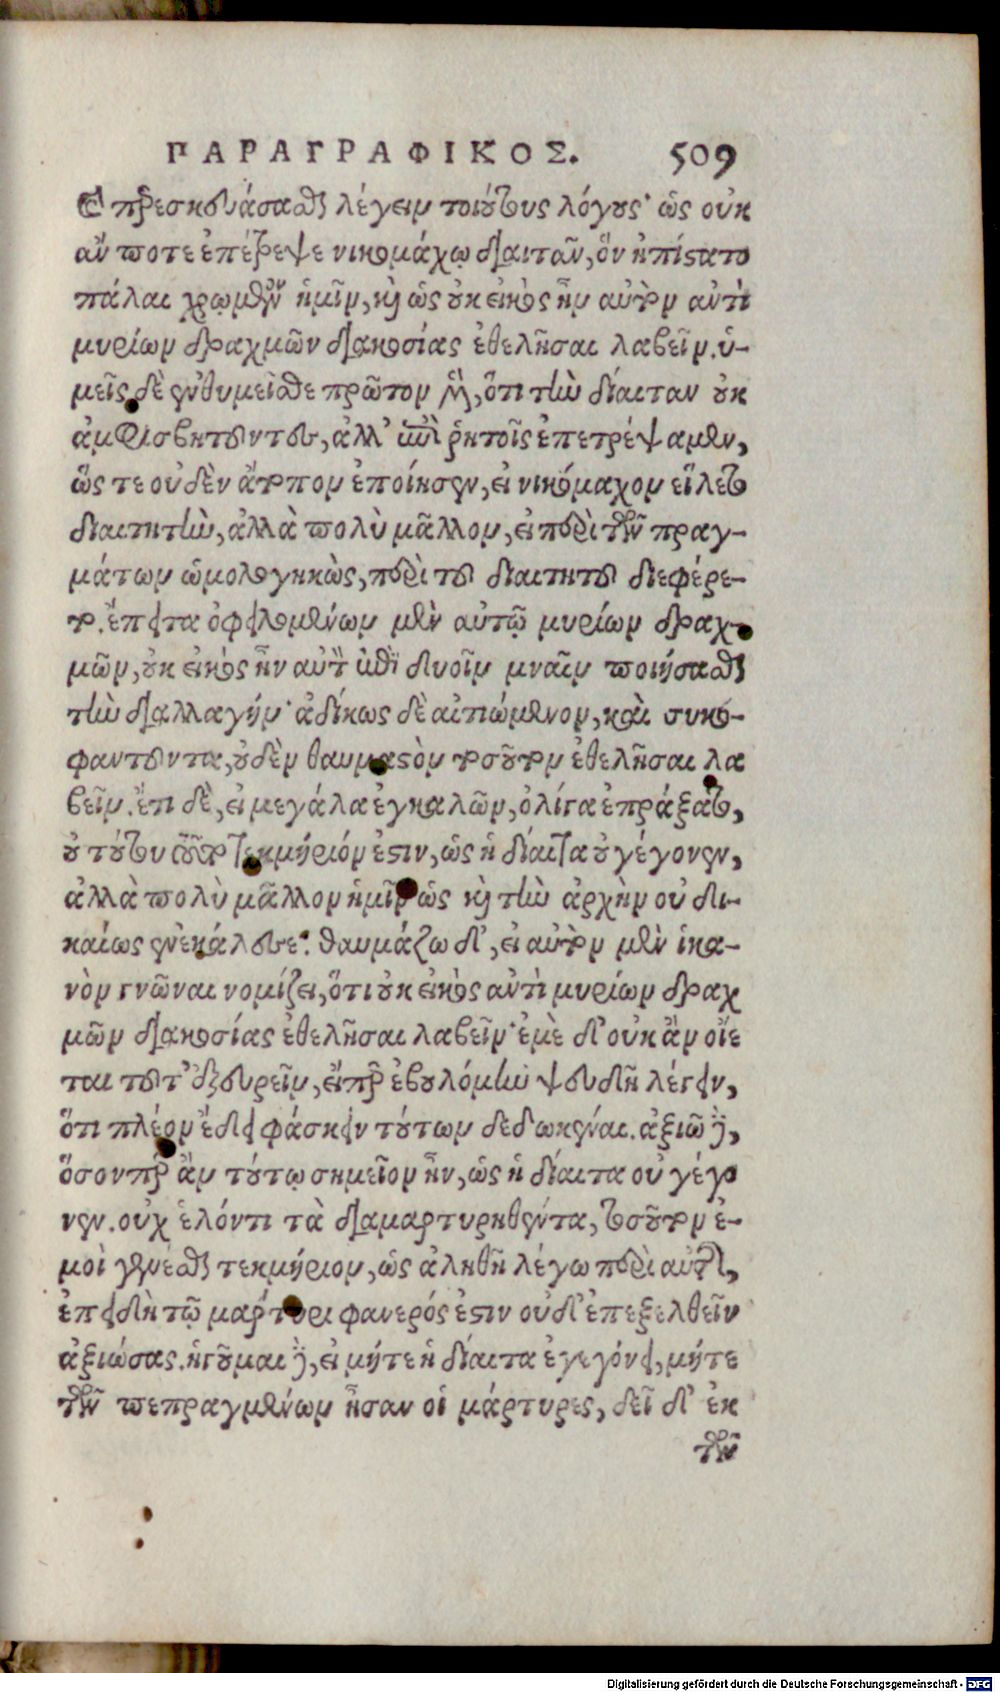 ΠΑΡΑΓΡΑΦΙΚΟΣ. 509
καὶ παρεσκευάσασθαι λέγειν τοιούτους λόγους· ὡς οὐκ
ἄν ποτε ἐπέτρεψε νικομάχῳ διαιτᾶν, ὅν ἠπίστατο
πάλαι χρώμενον ἡμῖν, καὶ ὡς οὐκ εἰκὸς ἦν αὐτὸν ἀντὶ
μυρίων δραχμῶν διακοσίας ἐθελῆσαι λαβεῖν. ὑ-
μεῖς δὲ ἐνθυμεῖσθε πρῶτον μὲν, ὅτι τὴν δίαιταν οὐκ
ἀμφισβητοῦντες, ἀλλ' ἐπὶ ῥητοῖς ἐπετρέψαμεν,
ὥς τε οὐδὲν ἄτοπον ἐποίησεν, εἰ νικόμαχον εἵλετο
διαιτητὴν, ἀλλὰ πολὺ μᾶλλον, εἰ περὶ τῶν πραγ-
μάτων ὡμολογηκὼς, περὶ τοῦ διαιτητοῦ διεφέρε-
το. ἔπειτα ὀφειλομένων μὲν αὐτῷ μυρίων δραχ-
μῶν, οὐκ εἰκὸς ἦν αὐτὸν ἐπὶ δυοῖν μναῖν ποιήσασθαι
τὴν διαλλαγήν· ἀδίκως δὲ αἰτιώμενον, καὶ συκο-
φαντοῦντα, οὐδὲν θαυμαστὸν τοσοῦτον ἐθελῆσαι λα
βεῖν. ἔτι δὲ, εἰ μεγάλα ἐγκαλῶν, ὀλίγα ἐπράξατο,
οὐ τούτου τοῦτο τεκμήριόν ἐστιν, ὡς ἡ δίαιτα οὐ γέγονεν,
ἀλλὰ πολὺ μᾶλλον ἡμῖν ὡς καὶ τὴν ἀρχὴν οὐ δι-
καίως ἐνεκάλεσε. θαυμάζω δ', εἰ αὐτὸν μὲν ἱκα-
νὸν γνῶναι νομίζει, ὅτι οὐκ εἰκὸς ἀντὶ μυρίων δραχ
μῶν διακοσίας ἐθελῆσαι λαβεῖν· ἐμὲ δ' οὐκ ἂν οἴε
ται τοῦτ' ἐξευρεῖν, εἴπερ ἐβουλόμην ψευδῆ λέγειν,
ὅτι πλέον ἔδει φάσκειν τούτων δεδωκέναι. ἀξιῶ δὲ,
ὅσον περ ἂν τούτῳ σημεῖον ἦν, ὡς ἡ δίαιτα οὐ γέγο
νεν. οὐχ ἑλόντι τὰ διαμαρτυρηθέντα, τοσοῦτον ἐ-
μοὶ γενέσθαι τεκμήριον, ὡς ἀληθῆ λέγω περὶ αὐτῆς,
ἐπειδὴ τῷ μάρτυρι φανερός ἐστιν οὐδ' ἐπεξελθεῖν
ἀξιώσας. ἡγοῦμαι δὲ, εἰ μήτε ἡ δίαιτα ἐγεγόνει, μήτε
τῶν πεπραγμένων ἦσαν οἱ μάρτυρες, δεῖ δ' ἐκ
τῶν
Digitalisierung gefördert durch die Deutsche Forschungsgemeinschaft - DFG